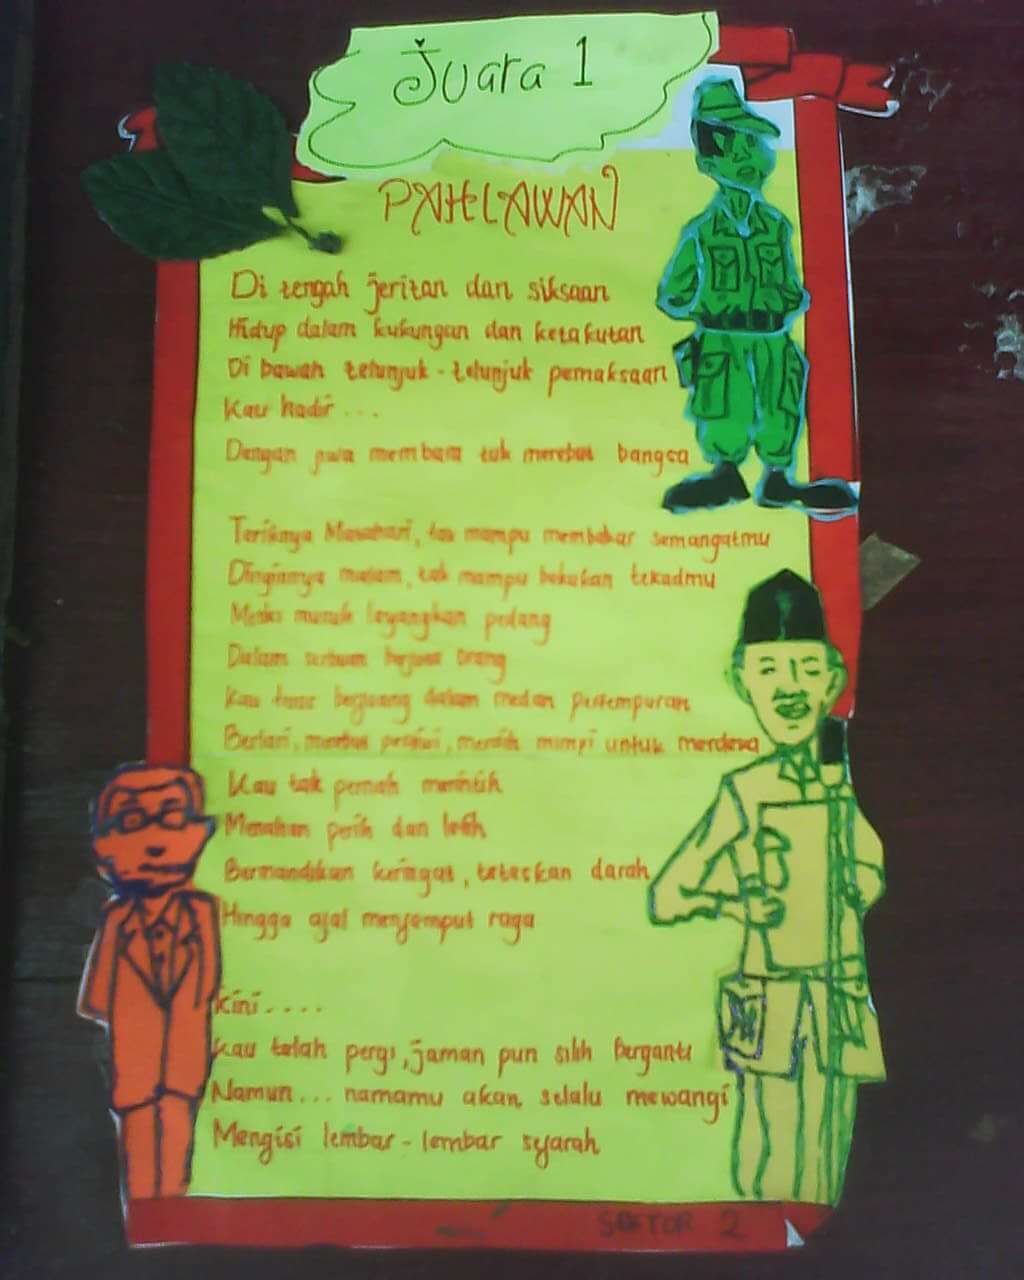 Juara 1
PAHLAWAN
Di tengah jeritan dan siksaan
Hidup dalam kukungan dan ketakutan
Di bawah telunjuk-telunjuk pemaksaan
Kau hadir...
Dengan jiwa membara tuk merebut bangsa
Teriknya Matahari, tak mampu membakar semangatmu
Dinginnya malam, tak mampu bekukan tekadmu
Meski musuh layangkan pedang
Dalam serbuan berjuta orang
Kau terus berjuang dalam medan pertempuran
Berlari, merebut posisi, meraih mimpi untuk merdeka
Kau tak pernah merintih
Menahan perih dan letih
Bermandikan keringat, teteskan darah
Hingga ajal menjemput raga
Kini....
Kau telah pergi, jaman pun silih berganti
Namun... namamu akan selalu mewangi
Mengisi lembar-lembar sejarah
SEKTOR 2